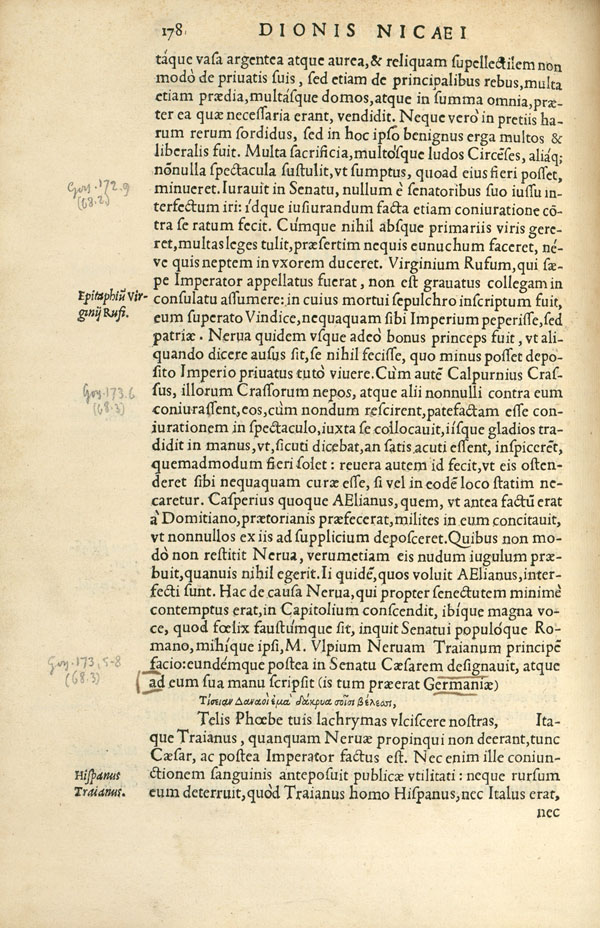 178. DIONIS NICAEI
táque vasa argentea atque aurea, & reliquam supellectilem non
modò de priuatis suis, sed etiam de principalibus rebus, multa
etiam prædia, multásque domos, atque in summa omnia, præ-
ter ea quæ necessaria erant, vendidit. Neque verò in pretiis ha-
rum rerum sordidus, sed in hoc ipso benignus erga multos &
liberalis fuit. Multa sacrificia, multósque ludos Circẽses, aliáq;
nõnulla spectacula sustulit, vt sumptus, quoad eius fieri posset,
Goy. 172.9
(68.2)
minueret. Iurauit in Senatu, nullum è senatoribus suo iussu in-
terfectum iri: ídque iusiurandum facta etiam coniuratione cõ-
tra se ratum fecit. Cúmque nihil absque primariis viris gere-
ret, multas leges tulit, præsertim nequis eunuchum faceret, né-
ve quis neptem in vxorem duceret. Virginium Rufum, qui sæ-
pe Imperator appellatus fuerat, non est grauatus collegam in
Epitaphiũ Vir-
ginij Rufi.
consulatu assumere: in cuius mortui sepulchro inscriptum fuit,
eum superato Vindice, nequaquam sibi Imperium peperisse, sed
patriæ. Nerua quidem vsque adeò bonus princeps fuit, vt ali-
quando dicere ausus sit, se nihil fecisse, quo minus posset depo-
sito Imperio priuatus tutò viuere. Cùm autẽ Calpurnius Cras-
Goy. 173.6
(68.3)
sus, illorum Crassorum nepos, atque alii nonnulli contra eum
coniurassent, eos, cùm nondum rescirent, patefactam esse con-
iurationem in spectaculo, iuxta se collocauit, iísque gladios tra-
didit in manus, vt, sicuti dicebat, an satis acuti essent, inspicerẽt,
quemadmodum fieri solet: reuera autem id fecit, vt eis osten-
deret sibi nequaquam curæ esse, si vel in eodẽ loco statim ne-
caretur. Casperius quoque AElianus, quem, vt antea factũ erat
à Domitiano, prætorianis præfecerat, milites in eum concitauit,
vt nonnullos ex iis ad supplicium deposceret. Quibus non mo-
dò non restitit Nerua, verumetiam eis nudum iugulum præ-
buit, quanuis nihil egerit. Ii quidẽ, quos voluit AElianus, inter-
fecti sunt. Hac de causa Nerua, qui propter senectutem minimè
contemptus erat, in Capitolium conscendit, ibíque magna vo-
ce, quod fœlix faustúmque sit, inquit Senatui populóque Ro-
mano, mihíque ipsi, M. Vlpium Neruam Traianum principẽ
Goy. 173, 5-8
(68.3)
facio: eundémque postea in Senatu Cæsarem designauit, atque
ad eum sua manu scripsit (is tum præerat Germaniæ)
Τίσειαν Δαναοὶ ἐμὰ δάκρυα σοῖσι βέλεσσι,
Telis Phœbe tuis lachrymas vlciscere nostras, Ita-
que Traianus, quanquam Neruæ propinqui non deerant, tunc
Cæsar, ac postea Imperator factus est. Nec enim ille coniun-
Hispanus
Traianus.
ctionem sanguinis anteposuit publicæ vtilitati: neque rursum
eum deterruit, quòd Traianus homo Hispanus, nec Italus erat,
nec